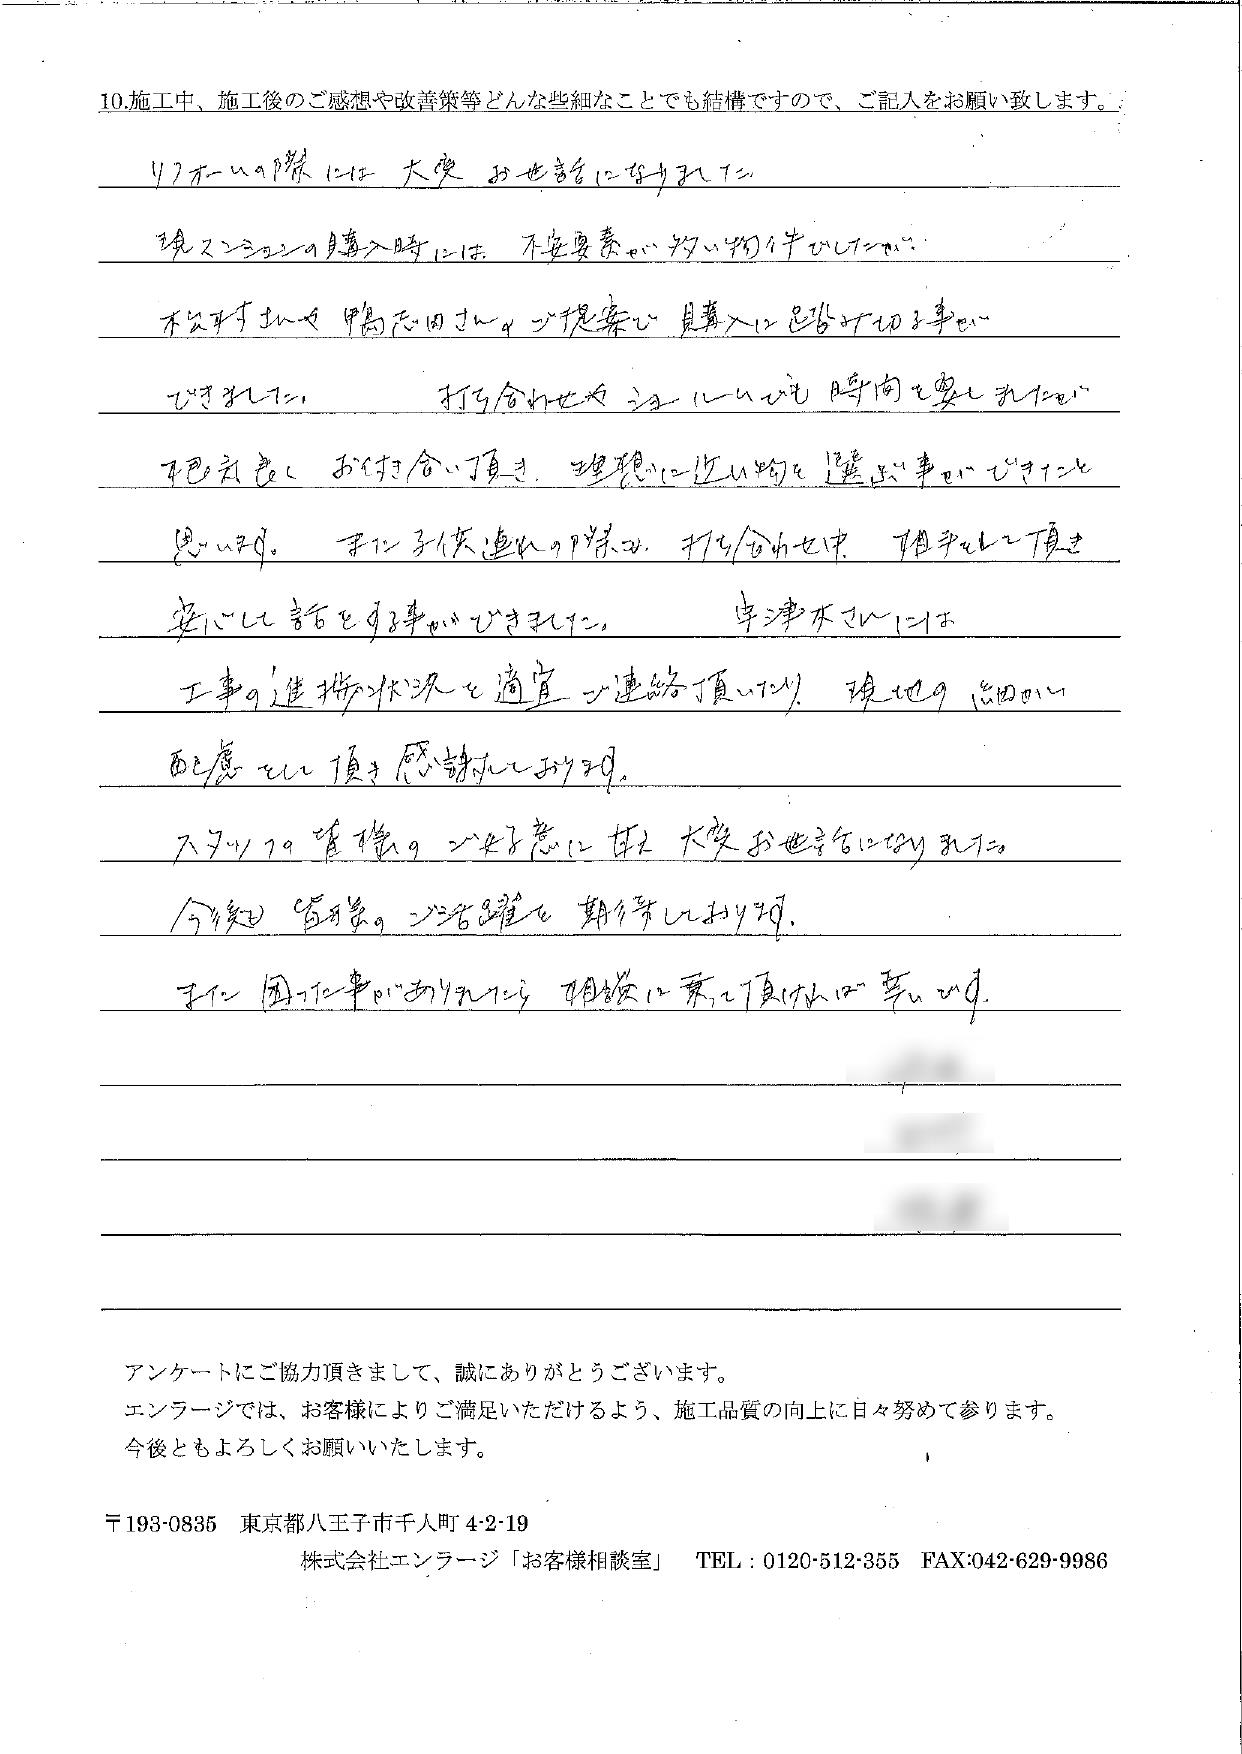 10.施工中、施工後のご感想や改善策等どんな些細なことでも結構ですので、ご記入をお願い致します。
リフォームの際には 大変 お世話になりました。
現マンションの購入時には、不安要素が多い物件でしたが、
松村さんや 鴨志田さんのご提案で 購入に足踏み切る事が
できました。 打ち合わせや ショールームでも 時間を要しましたが
根気良く お付き合い頂き、理想に近い物を選ぶ事ができたと
思います。 また子供連れの際は、打ち合わせ中、相手をして頂き
安心して話をする事ができました。 宇津木さんには
工事の進捗状況を適宜ご連絡頂いたり、現地の細かい
配慮をして頂き感謝しております。
スタッフの皆様のご好意に甘え 大変お世話になりました。
今後も 皆様のご活躍を期待しております。
また困った事がありましたら 相談に乗って頂ければ幸いです。
アンケートにご協力頂きまして、誠にありがとうございます。
エンラージでは、お客様によりご満足いただけるよう、施工品質の向上に日々努めて参ります。
今後ともよろしくお願いいたします。
〒193-0835 東京都八王子市千人町 4-2-19
株式会社エンラージ「お客様相談室」 TEL:0120-512-355 FAX:042-629-9986